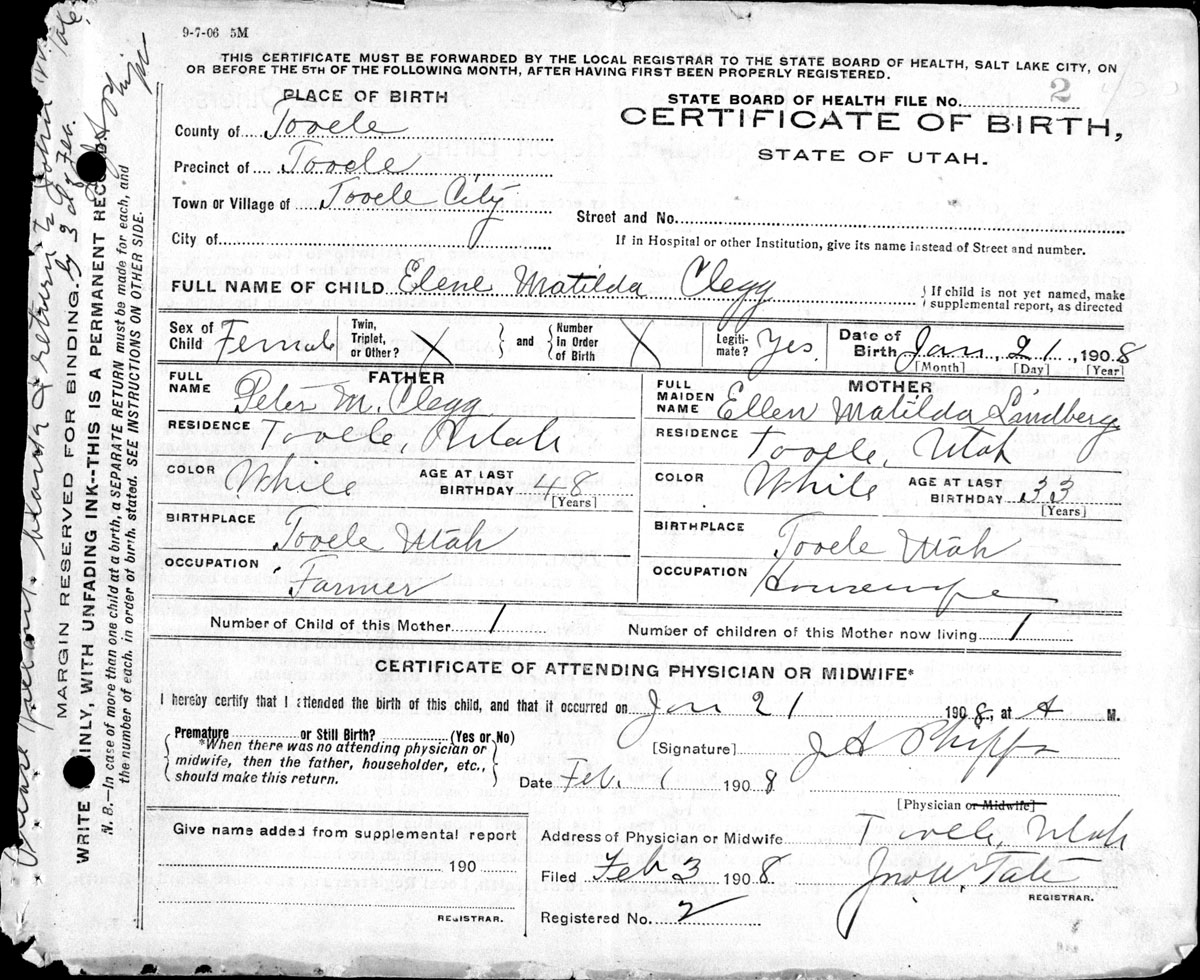 9-7-06 5M
THIS CERTIFICATE MUST BE FORWARDED BY THE LOCAL REGISTRAR TO THE STATE BOARD OF HEALTH, SALT LAKE CITY, ON
OR BEFORE THE 5TH OF THE FOLLOWING MONTH, AFTER HAVING FIRST BEEN PROPERLY REGISTERED.
PLACE OF BIRTH
County of Tooele
Precinct of Tooele
Town or Village of Tooele City
City of
STATE BOARD OF HEALTH FILE No. 2
CERTIFICATE OF BIRTH,
STATE OF UTAH.
Street and No.
If in Hospital or other Institution, give its name instead of Street and number.
FULL NAME OF CHILD Elene Matilda Clegg
If child is not yet named, make
supplemental report, as directed
Sex of Child Female
Twin, Triplet, or Other? X
and Number in Order of Birth X
Legiti-mate? Yes
Date of Birth Jan, 21, 1908
[Month] [Day] [Year]
FATHER
FULL NAME Peter M. Clegg
RESIDENCE Tooele, Utah
COLOR White AGE AT LAST BIRTHDAY 48
[Years]
BIRTHPLACE Tooele Utah
OCCUPATION Farmer
MOTHER
FULL MAIDEN NAME Ellen Matilda Lindberg
RESIDENCE Tooele, Utah
COLOR White AGE AT LAST BIRTHDAY 33
[Years]
BIRTHPLACE Tooele Utah
OCCUPATION Housewife
Number of Child of this Mother 1 Number of children of this Mother now living 1
CERTIFICATE OF ATTENDING PHYSICIAN OR MIDWIFE*
I hereby certify that I attended the birth of this child, and that it occurred on Jan 21 1908, at A M.
Premature or Still Birth? (Yes or No)
*When there was no attending physician or
midwife, then the father, householder, etc.,
should make this return.
[Signature] J A Phipps
Date Feb. 1 1908
[Physician or Midwife]
Give name added from supplemental report
190
REGISTRAR.
Address of Physician or Midwife Tooele, Utah
Filed Feb 3 1908 Jno W. Tate
REGISTRAR.
Registered No. 2
Please return to John W. Tate
by 3 d of Feb.
MARGIN RESERVED FOR BINDING.
WRITE PLAINLY, WITH UNFADING INK--THIS IS A PERMANENT RECORD
N. B.—In case of more than one child at a birth, a SEPARATE RETURN must be made for each, and
the number of each, in order of birth, stated. SEE INSTRUCTIONS ON OTHER SIDE.